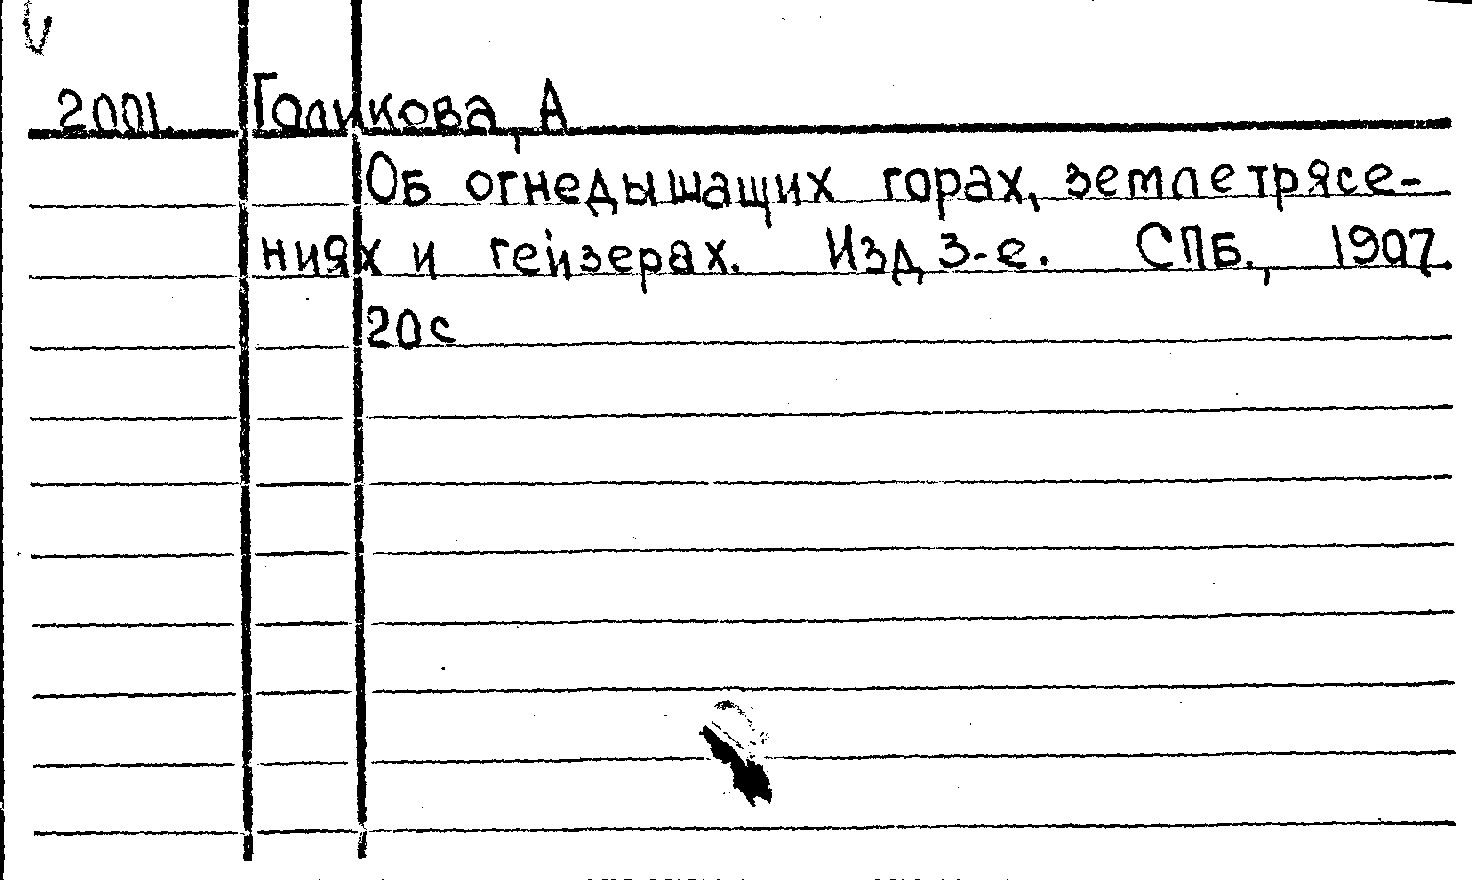 2001. Голикова, А
Об огнедышащих горах, землетрясе-
ниях и гейзерах. Изд 3-е. СПБ., 1907.
20с